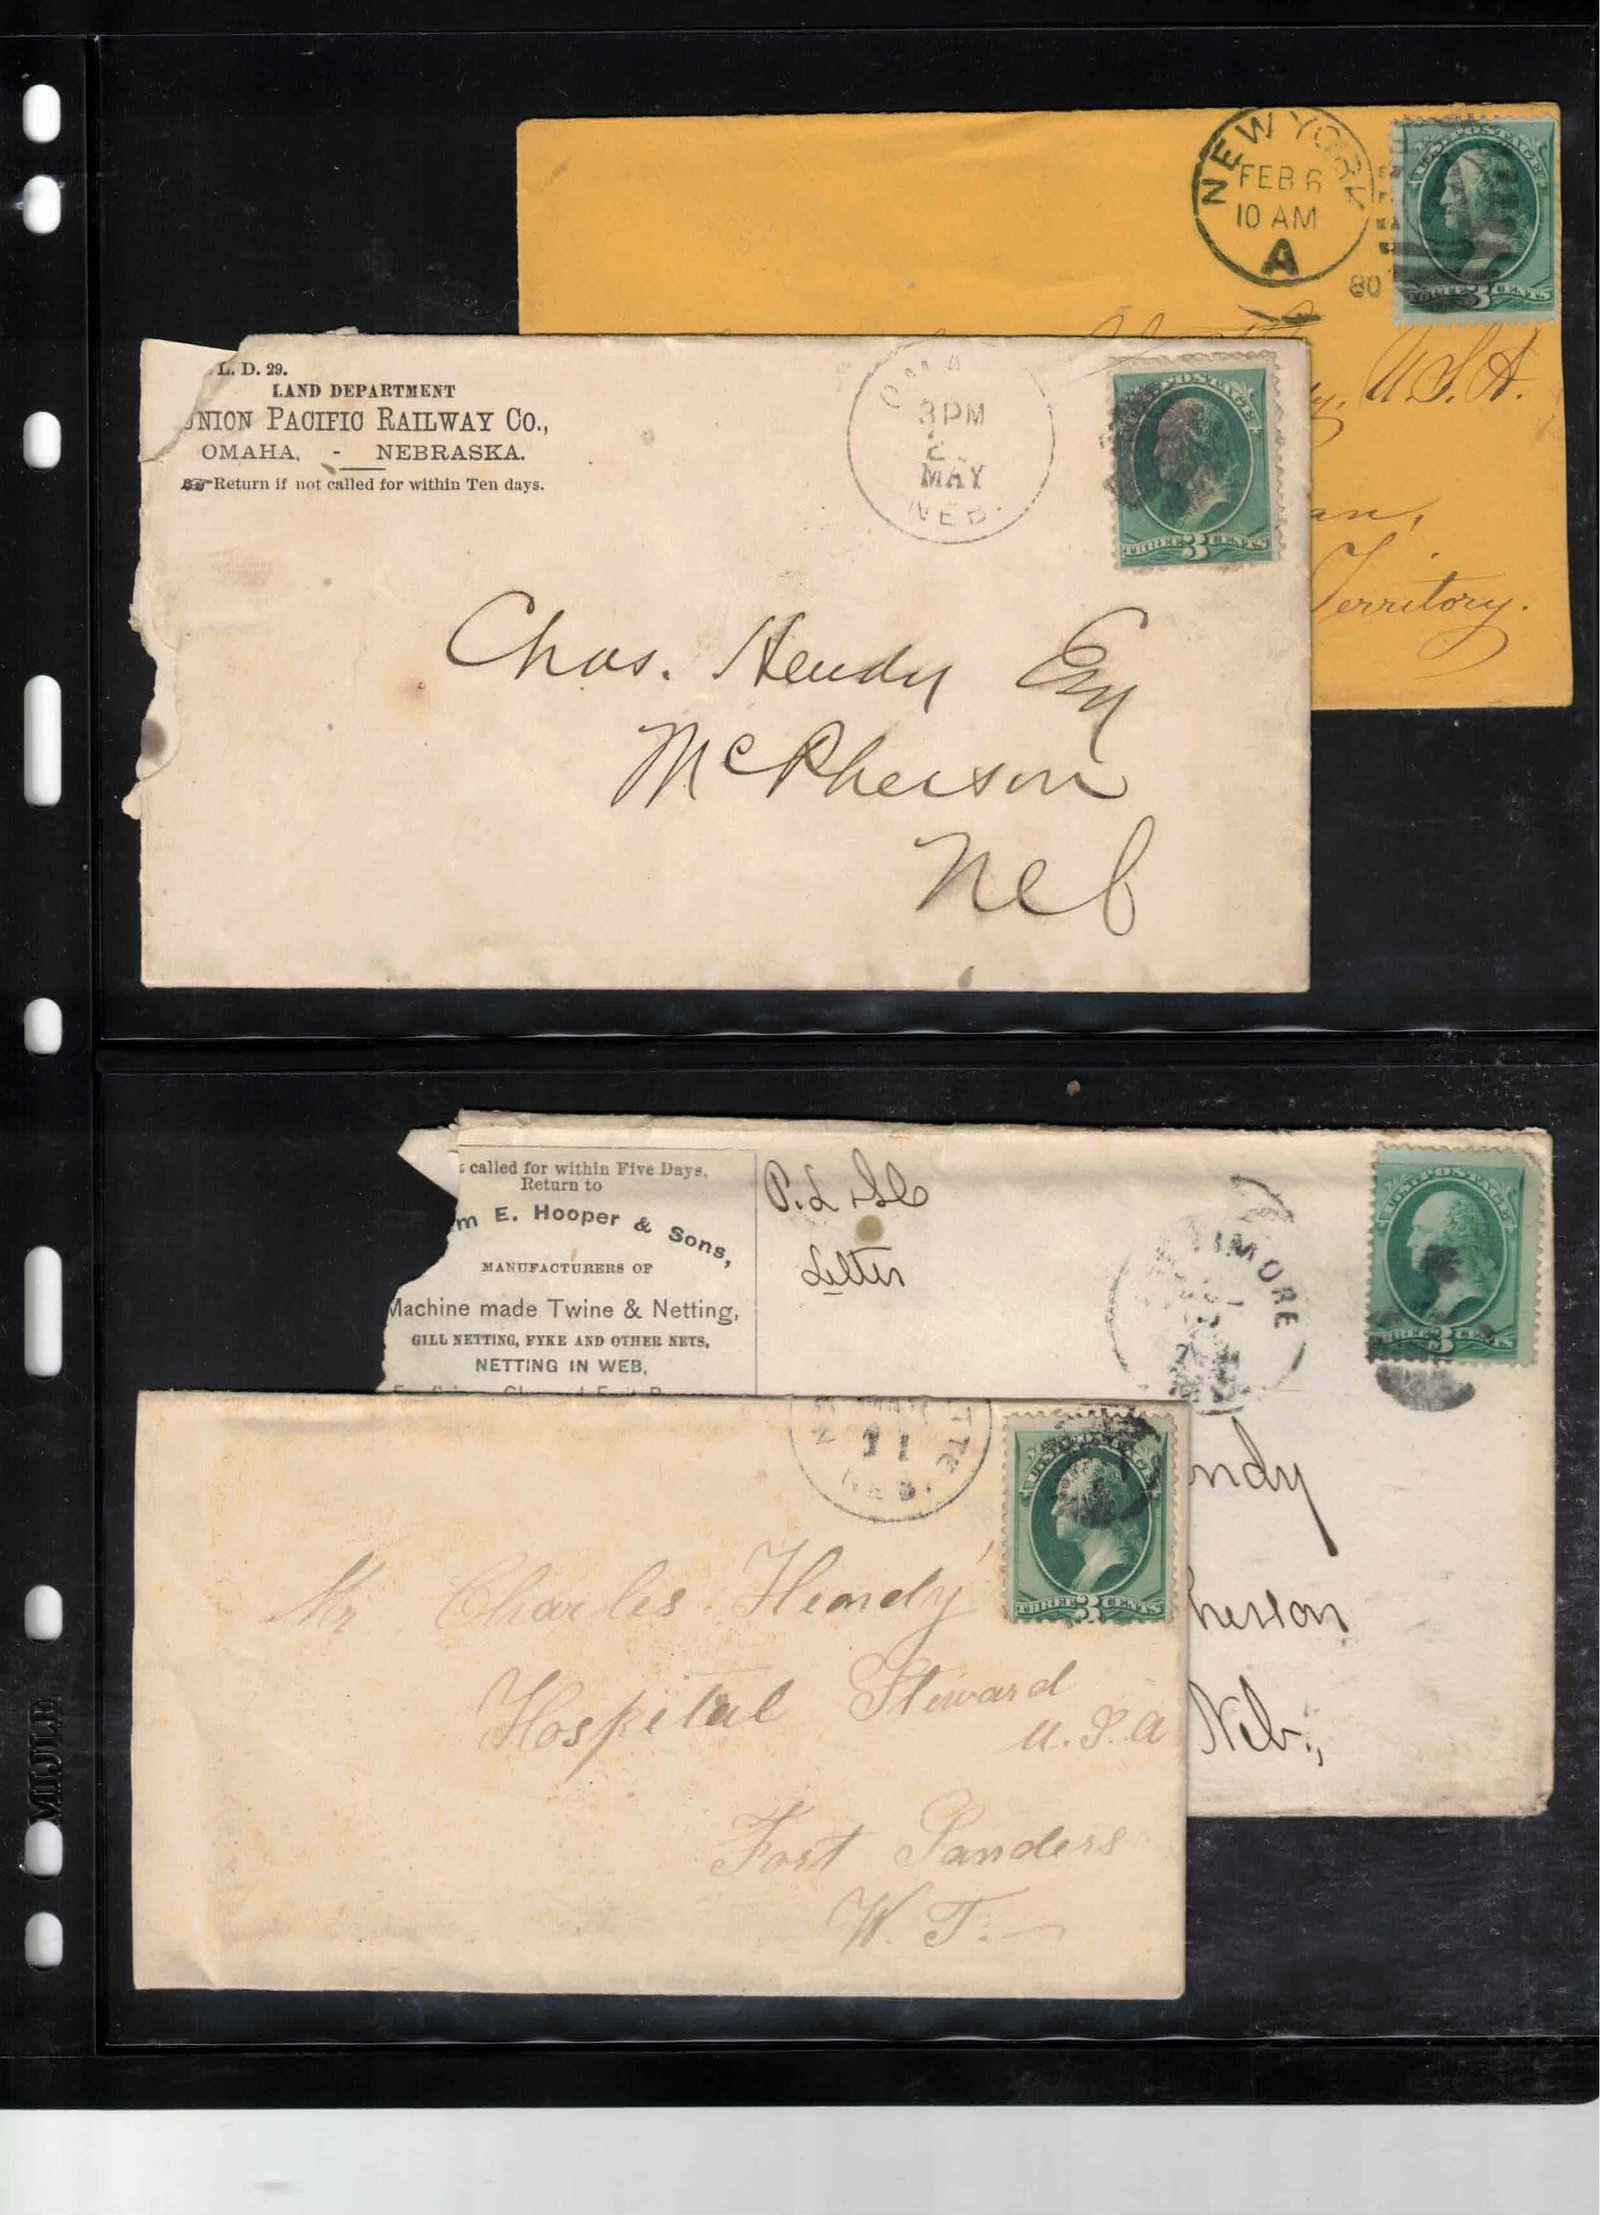 NEW YORK
FEB 6
10 AM
A
80
U.S. POSTAGE
THREE 3 CENTS
U.S.A.
an,
Territory.
L. D. 29.
LAND DEPARTMENT
UNION PACIFIC RAILWAY CO.,
OMAHA, - NEBRASKA.
Return if not called for within Ten days.
OMA
3PM
2
MAY
NEB.
U.S. POSTAGE
THREE 3 CENTS
Chas. Hendy Esq
McPherson
Neb
called for within Five Days,
Return to
m E. Hooper & Sons,
MANUFACTURERS OF
Machine made Twine & Netting,
GILL NETTING, FYKE AND OTHER NETS,
NETTING IN WEB,
Letter
IMORE
U.S. POSTAGE
THREE 3 CENTS
ndy
herson
Neb.,
N
TTE
MAR
11
NEB.
U.S. POSTAGE
THREE 3 CENTS
Mr Charles Hendy
Hospital Steward
U.S.A
Fort Sanders
W. T.
MIJLE